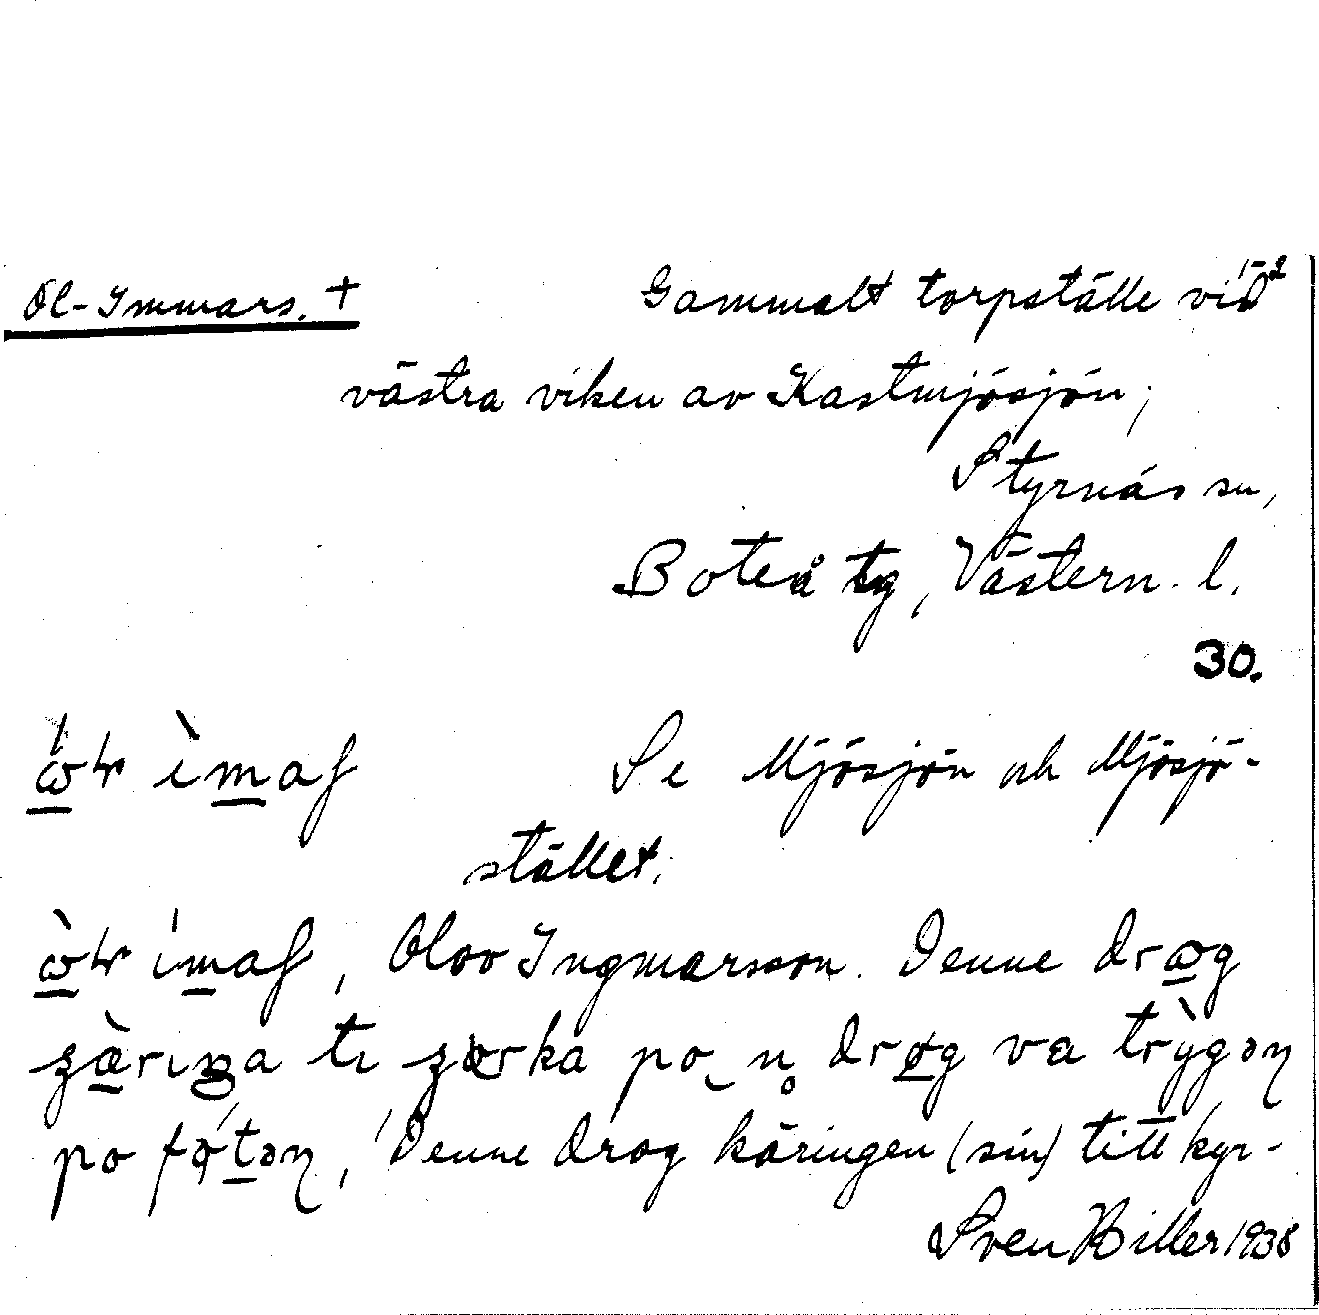 Ol-Immars. +
Gammalt torpställe vid
1-2
västra viken av Kastmjösjön;
Styrnäs sn,
Boteå tg, Västern. l.
30.
Se Mjösjön och Mjösjö-
stället.
Olov Ingmarsson. Denne drog
ti po drøg va trỳgən
po fó̷tən, 'Denne drog käringen (sin) till kyr-
Sven Biller 1938